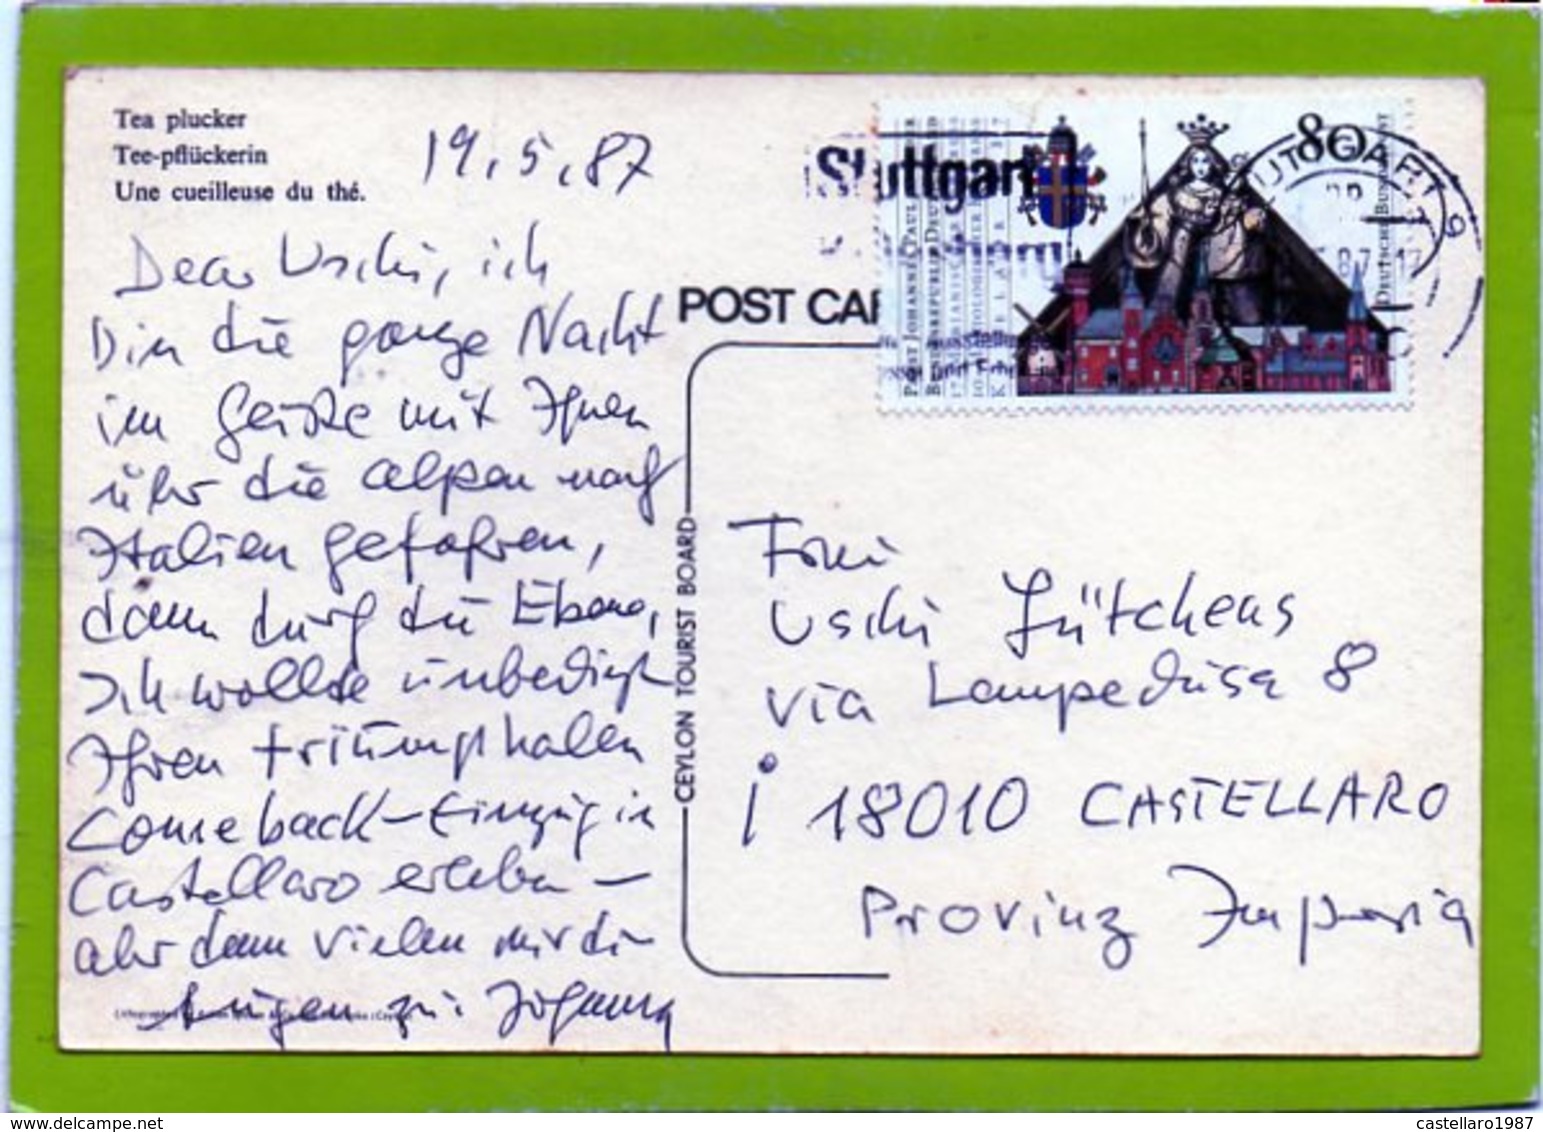 Tea plucker
Tee-pflückerin
Une cueilleuse du thé.
19.5.87
Dear Uschi, ich
bin die ganze Nacht
im Geiste mit Ihnen
über die Alpen nach
Italien gefahren,
dann durch die Ebene,
Ich wollte unbedingt
Ihren triumphalen
Comeback-Einzug in
Castellaro erleben –
aber dann vielen mir die
Augen zu: Johanna
POST CAR
CEYLON TOURIST BOARD
Stuttgart
STUTTGART 9
87-17
80
DEUTSCHE BUNDESPOST
Frau
Uschi Lütchens
via Lampedusa 8
i 18010 CASTELLARO
Provinz Imperia
delcampe.net
castellaro1987